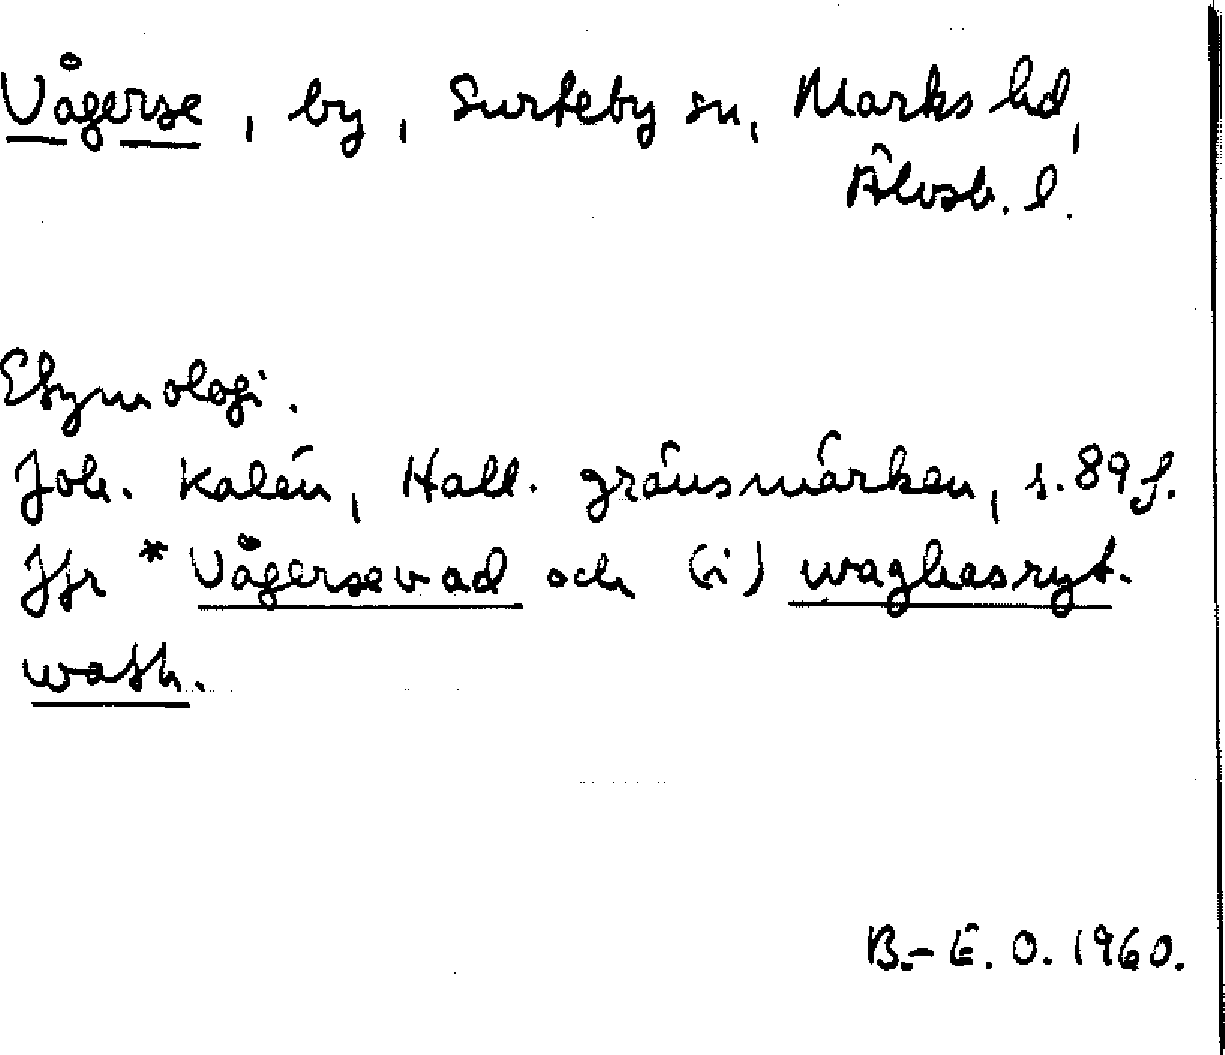 Vågerse, by, Surteby sn, Marks hd,
Älvsb. l.
Etymologi.
Joh. Kalén, Hall. gränsmärken, s. 89 f.
Jfr *Vågersevad och (i) waghasryt.
wath.
B.-E. O. 1960.